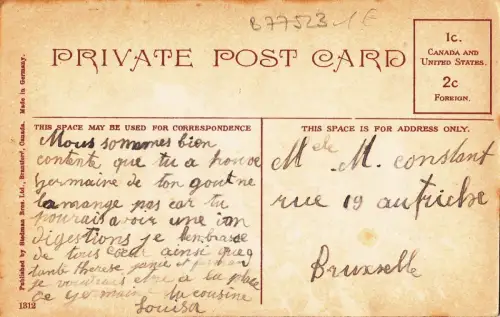 B77523-1E
PRIVATE POST CARD
1c.
CANADA AND
UNITED STATES.
2c
FOREIGN.
Published by Stedman Bros. Ltd., Brantford, Canada. Made in Germany.
THIS SPACE MAY BE USED FOR CORRESPONDENCE
Nous sommes bien
contente que tu a
germaine de ton gout ne
la mange pas car tu
pourais avoir une
digestions je tembrasse
de tous cœur ainsi que
tante therese
je voudrais etre a la place
de Germaine ta cousine
Louisa
1312
THIS SPACE IS FOR ADDRESS ONLY.
Melle M. constant
rue 19 autriche
Bruxselle